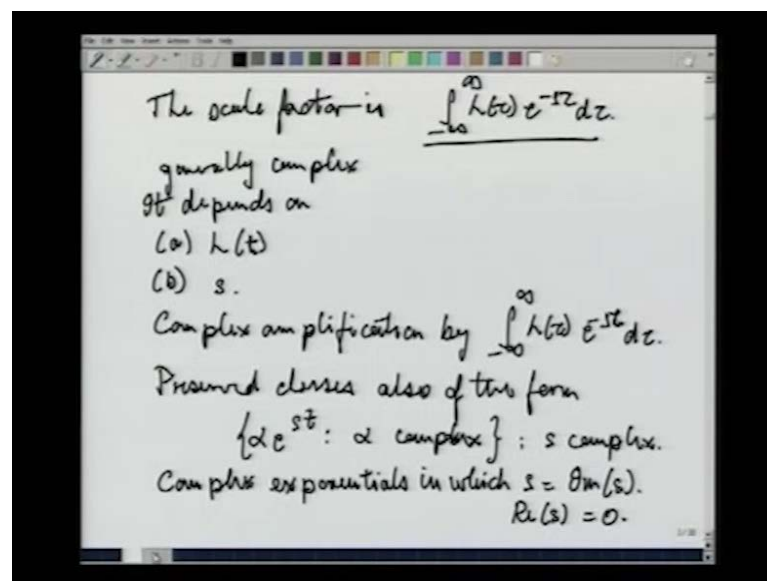 The scale factor is ∫_{-∞}^{∞} h(τ) e^{-sτ} dτ.
generally complex
It depends on
(a) h(t)
(b) s.
Complex amplification by ∫_{-∞}^{∞} h(τ) e^{-sτ} dτ.
Preserved classes also of this form
{αe^{st} : α complex} ; s complex.
Complex exponentials in which s = Im(s).
Re(s) = 0.